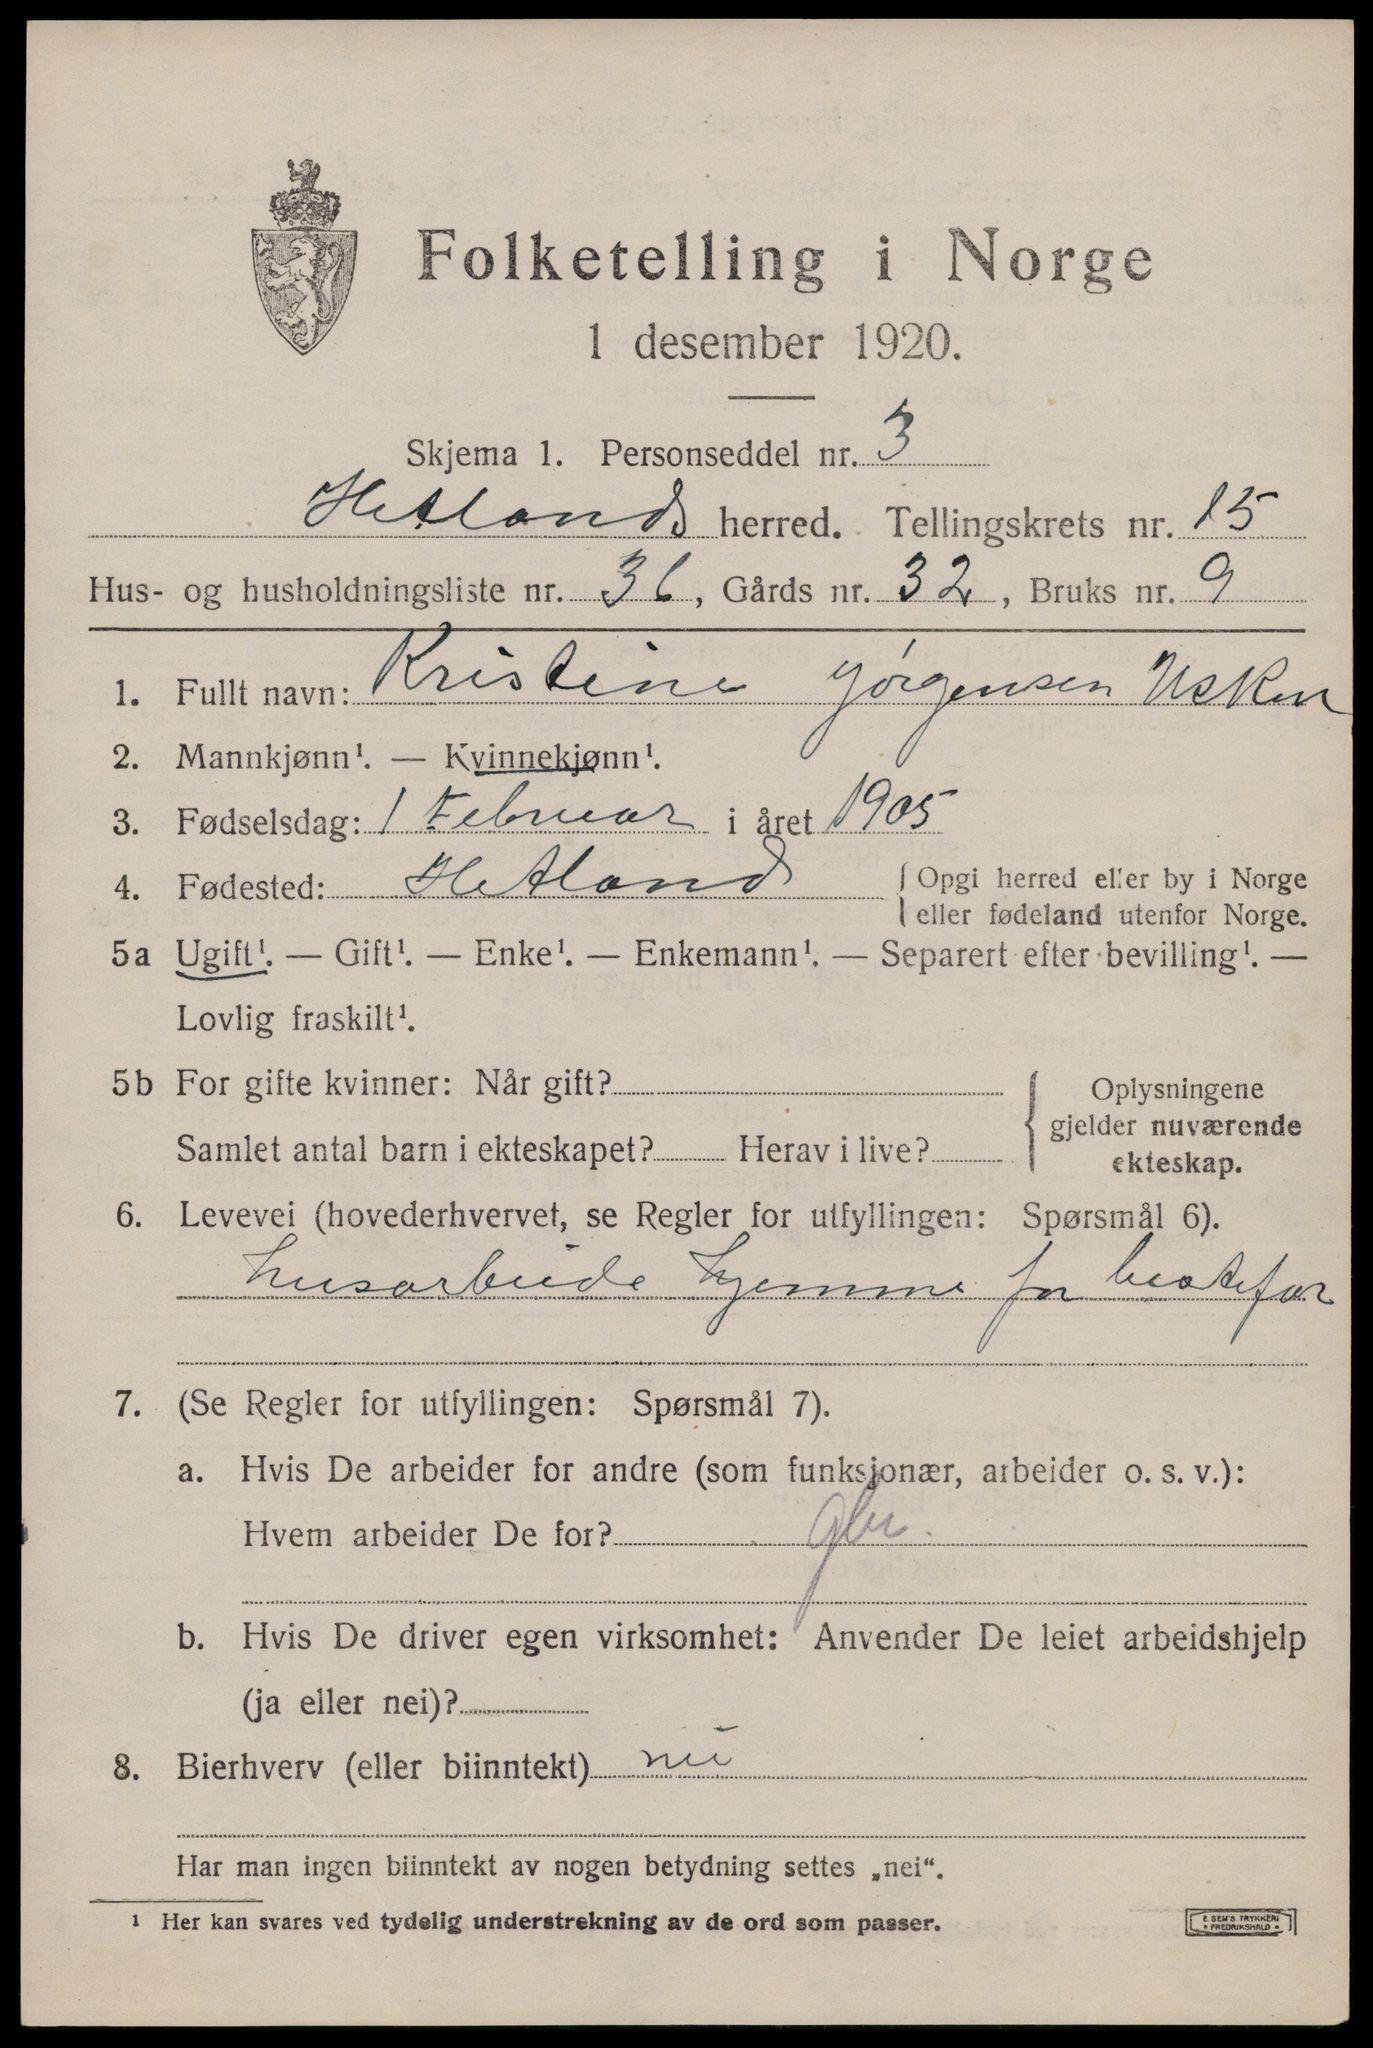 Folketelling i Norge
1 desember 1920.
Skjema 1. Personseddel nr. 3
Hetland herred. Tellingskrets nr. 15
Hus- og husholdningsliste nr. 36, Gårds nr. 32, Bruks nr. 9
1. Fullt navn: Kristine Jørgensen Usken
2. Mannkjønn¹. — Kvinnekjønn¹.
3. Fødselsdag: 1 Februar i året 1905
4. Fødested: Hetland { Opgi herred eller by i Norge
eller fødeland utenfor Norge.
5a Ugift¹. — Gift¹. — Enke¹. — Enkemann¹. — Separert efter bevilling¹. —
Lovlig fraskilt¹.
5b For gifte kvinner: Når gift?
Samlet antal barn i ekteskapet? Herav i live?
{ Oplysningene
gjelder nuværende
ekteskap.
6. Levevei (hovederhvervet, se Regler for utfyllingen: Spørsmål 6).
husarbeide hjemme for bestefar
7. (Se Regler for utfyllingen: Spørsmål 7).
a. Hvis De arbeider for andre (som funksjonær, arbeider o. s. v.):
Hvem arbeider De for? gbr.
b. Hvis De driver egen virksomhet: Anvender De leiet arbeidshjelp
(ja eller nei)?
8. Bierhverv (eller biinntekt) nei
Har man ingen biinntekt av nogen betydning settes „nei“.
¹ Her kan svares ved tydelig understrekning av de ord som passer.
E. SEM'S TRYKKERI
FREDRIKSHALD